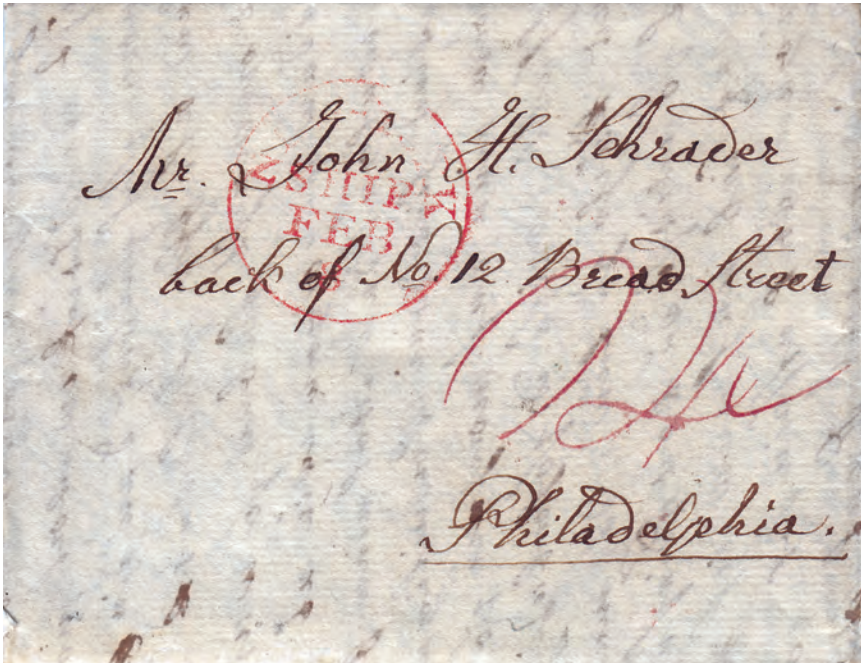 Mr. John H. Schrader
SHIP
FEB
8
back of No 12 Bread Street
24
Philadelphia.